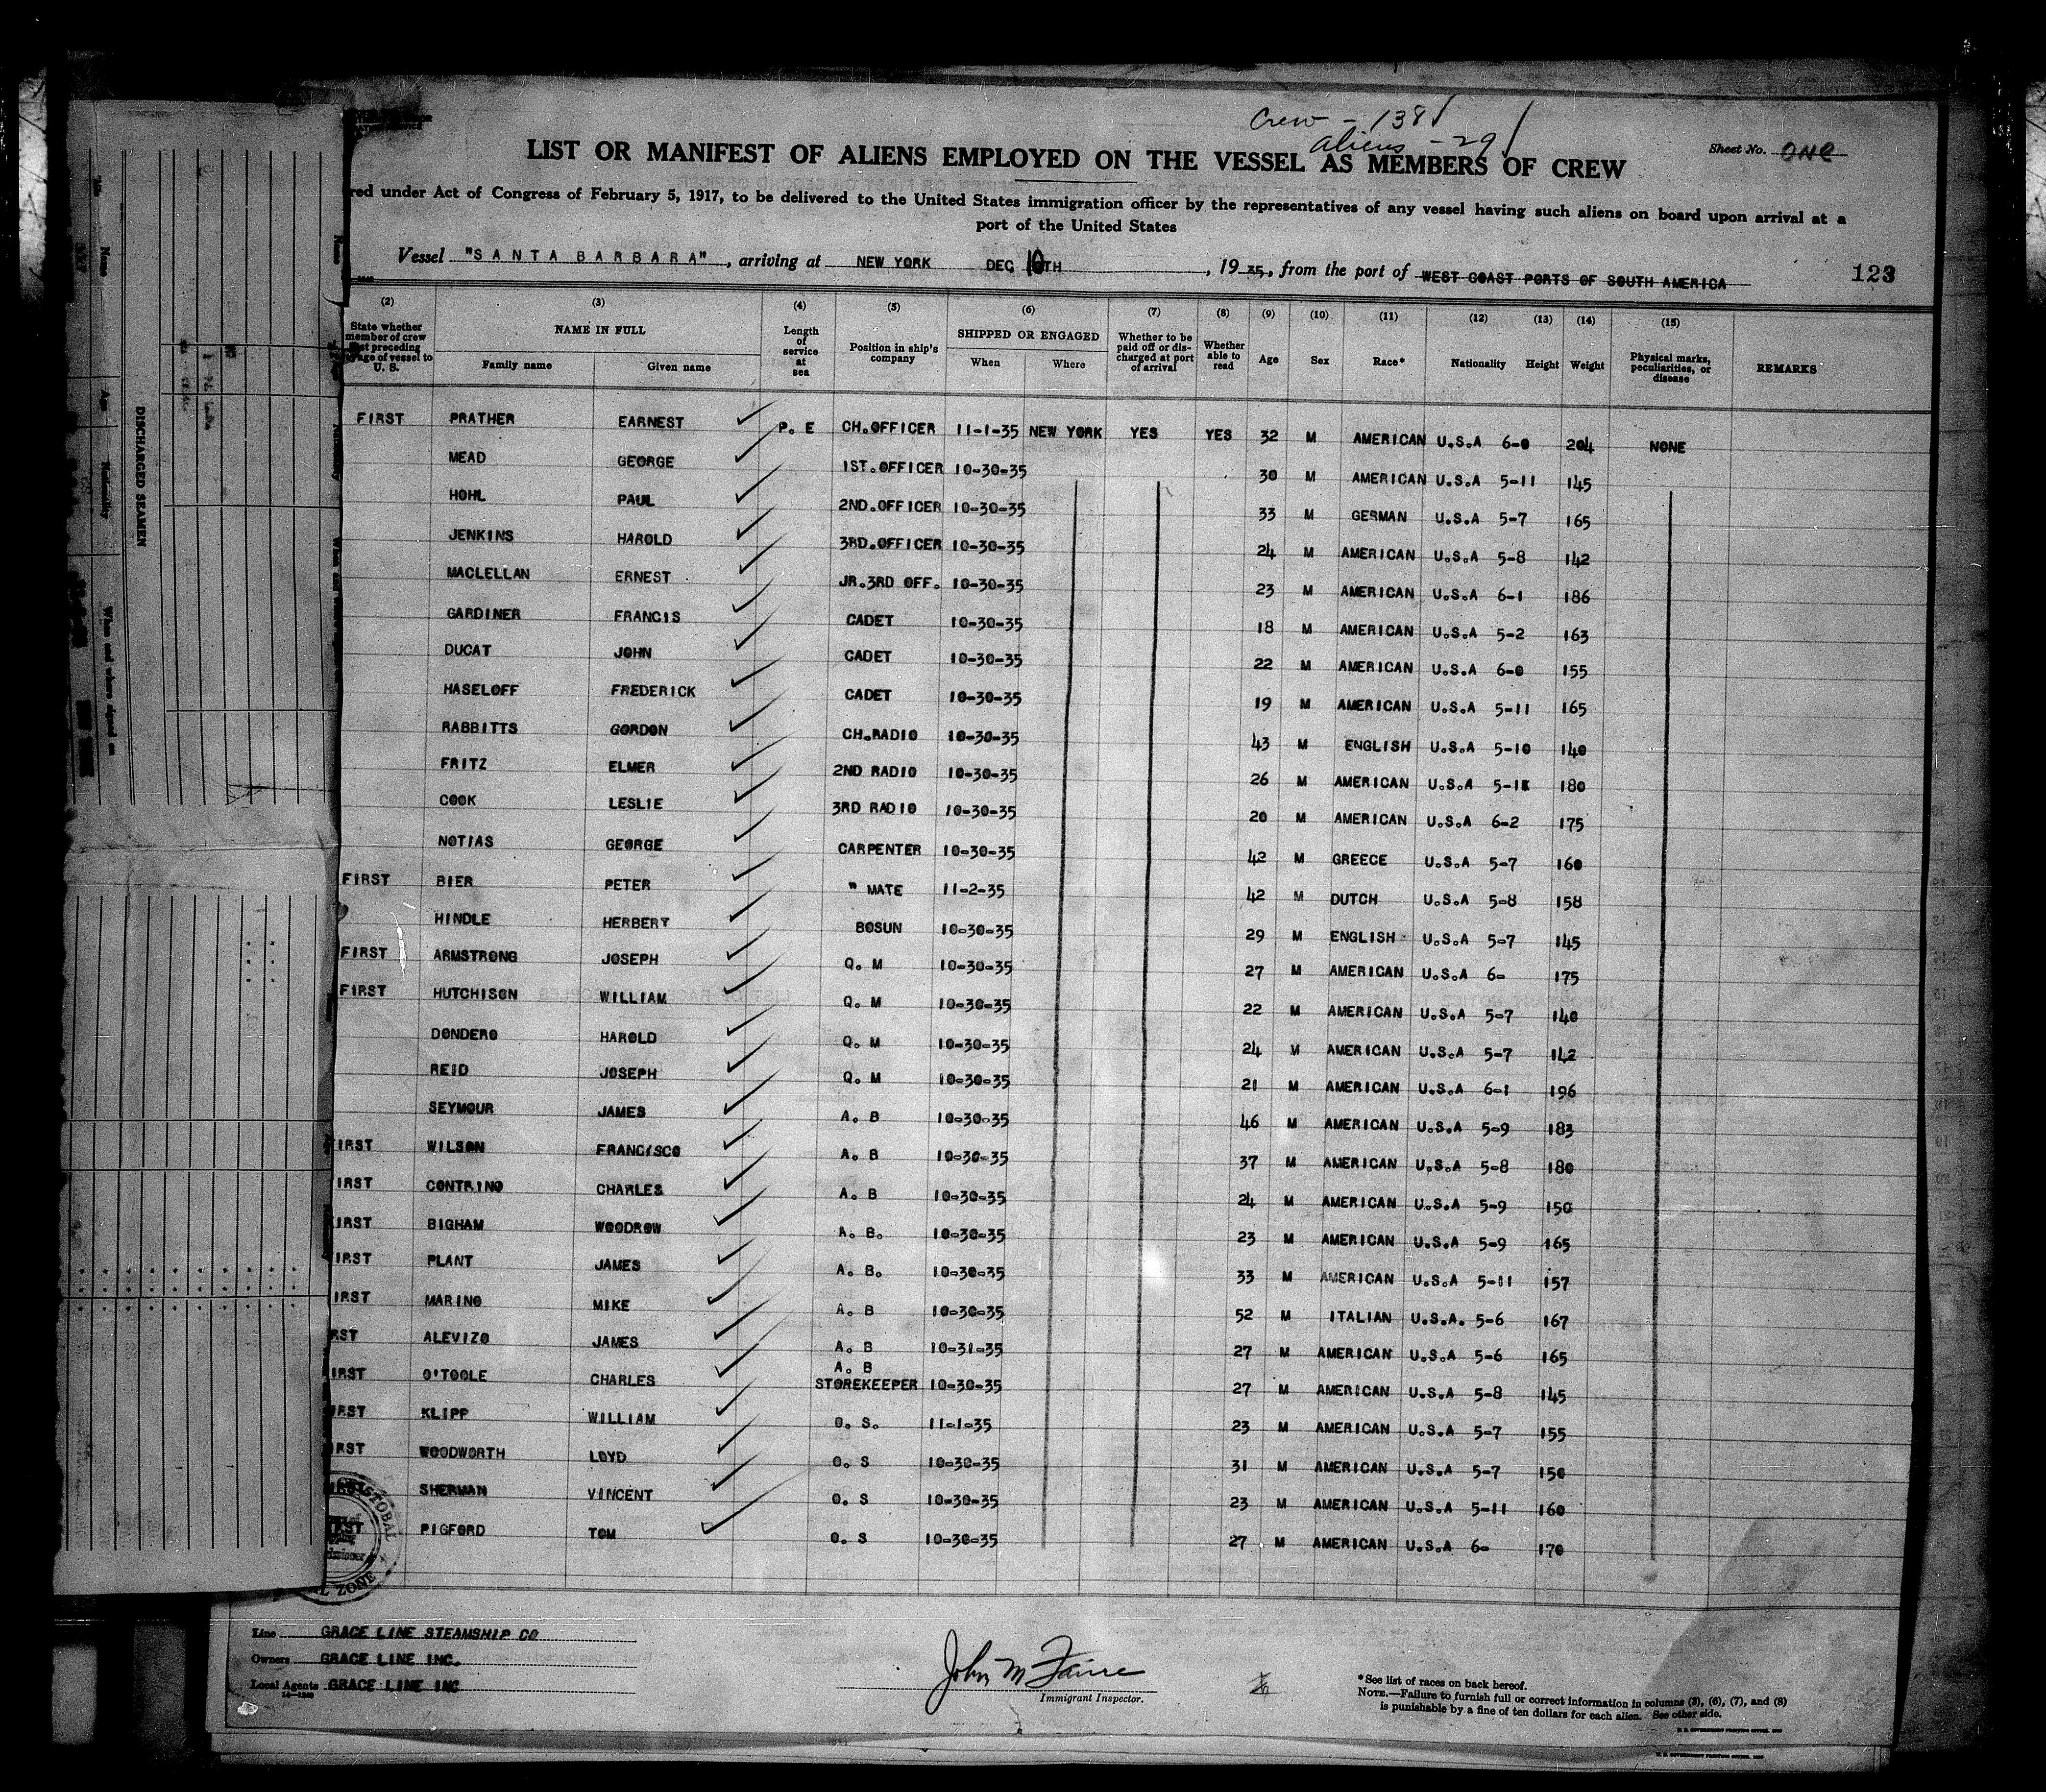 Crew - 138
aliens - 29
Sheet No. ONE
LIST OR MANIFEST OF ALIENS EMPLOYED ON THE VESSEL AS MEMBERS OF CREW
red under Act of Congress of February 5, 1917, to be delivered to the United States immigration officer by the representatives of any vessel having such aliens on board upon arrival at a
port of the United States
Vessel "SANTA BARBARA", arriving at NEW YORK DEC 10TH, 1935, from the port of WEST COAST PORTS OF SOUTH AMERICA 123
(2) (3) (4) (5) (6) (7) (8) (9) (10) (11) (12) (13) (14) (15)
State whether member of crew last preceding voyage of vessel to U. S. NAME IN FULL Family name Given name Length of service at sea Position in ship's company SHIPPED OR ENGAGED When Where Whether to be paid off or discharged at port of arrival Whether able to read Age Sex Race* Nationality Height Weight Physical marks, peculiarities, or disease REMARKS
FIRST PRATHER EARNEST P. E CH.OFFICER 11-1-35 NEW YORK YES YES 32 M AMERICAN U.S.A 6-0 204 NONE
MEAD GEORGE 1ST.OFFICER 10-30-35 30 M AMERICAN U.S.A 5-11 145
HOHL PAUL 2ND.OFFICER 10-30-35 33 M GERMAN U.S.A 5-7 165
JENKINS HAROLD 3RD.OFFICER 10-30-35 24 M AMERICAN U.S.A 5-8 142
MACLELLAN ERNEST JR.3RD OFF. 10-30-35 23 M AMERICAN U.S.A 6-1 186
GARDINER FRANCIS CADET 10-30-35 18 M AMERICAN U.S.A 5-2 163
DUCAT JOHN CADET 10-30-35 22 M AMERICAN U.S.A 6-0 155
HASELOFF FREDERICK CADET 10-30-35 19 M AMERICAN U.S.A 5-11 165
RABBITTS GORDON CH.RADIO 10-30-35 43 M ENGLISH U.S.A 5-10 140
FRITZ ELMER 2ND RADIO 10-30-35 26 M AMERICAN U.S.A 5-11 180
COOK LESLIE 3RD RADIO 10-30-35 20 M AMERICAN U.S.A 6-2 175
NOTIAS GEORGE CARPENTER 10-30-35 42 M GREECE U.S.A 5-7 160
FIRST BIER PETER " MATE 11-2-35 42 M DUTCH U.S.A 5-8 158
HINDLE HERBERT BOSUN 10-30-35 29 M ENGLISH U.S.A 5-7 145
FIRST ARMSTRONG JOSEPH Q. M 10-30-35 27 M AMERICAN U.S.A 6- 175
FIRST HUTCHISON WILLIAM Q. M 10-30-35 22 M AMERICAN U.S.A 5-7 140
DONDERO HAROLD Q. M 10-30-35 24 M AMERICAN U.S.A 5-7 142
REID JOSEPH Q. M 10-30-35 21 M AMERICAN U.S.A 6-1 196
SEYMOUR JAMES A. B 10-30-35 46 M AMERICAN U.S.A 5-9 183
FIRST WILSON FRANCISCO A. B 10-30-35 37 M AMERICAN U.S.A 5-8 180
IRST CONTRINO CHARLES A. B 10-30-35 24 M AMERICAN U.S.A 5-9 150
IRST BIGHAM WOODROW A. B. 10-30-35 23 M AMERICAN U.S.A 5-9 165
IRST PLANT JAMES A. B. 10-30-35 33 M AMERICAN U.S.A 5-11 157
IRST MARINO MIKE A. B 10-30-35 52 M ITALIAN U.S.A. 5-6 167
RST ALEVIZO JAMES A. B 10-31-35 27 M AMERICAN U.S.A 5-6 165
IRST O'TOOLE CHARLES A. B STOREKEEPER 10-30-35 27 M AMERICAN U.S.A 5-8 145
IRST KLIPP WILLIAM O. S. 11-1-35 23 M AMERICAN U.S.A 5-7 155
IRST WOODWORTH LOYD O. S 10-30-35 31 M AMERICAN U.S.A 5-7 150
SHERMAN VINCENT O. S 10-30-35 23 M AMERICAN U.S.A 5-11 160
PIGFORD TOM O. S 10-30-35 27 M AMERICAN U.S.A 6- 170
Line GRACE LINE STEAMSHIP CO
Owners GRACE LINE INC.
Local Agents GRACE LINE INC
Immigrant Inspector.
*See list of races on back hereof.
NOTE.—Failure to furnish full or correct information in columns (3), (6), (7), and (8)
is punishable by a fine of ten dollars for each alien. See other side.
DISCHARGED SEAMEN
Name
Age
Nationality
When and where signed on
ZONE